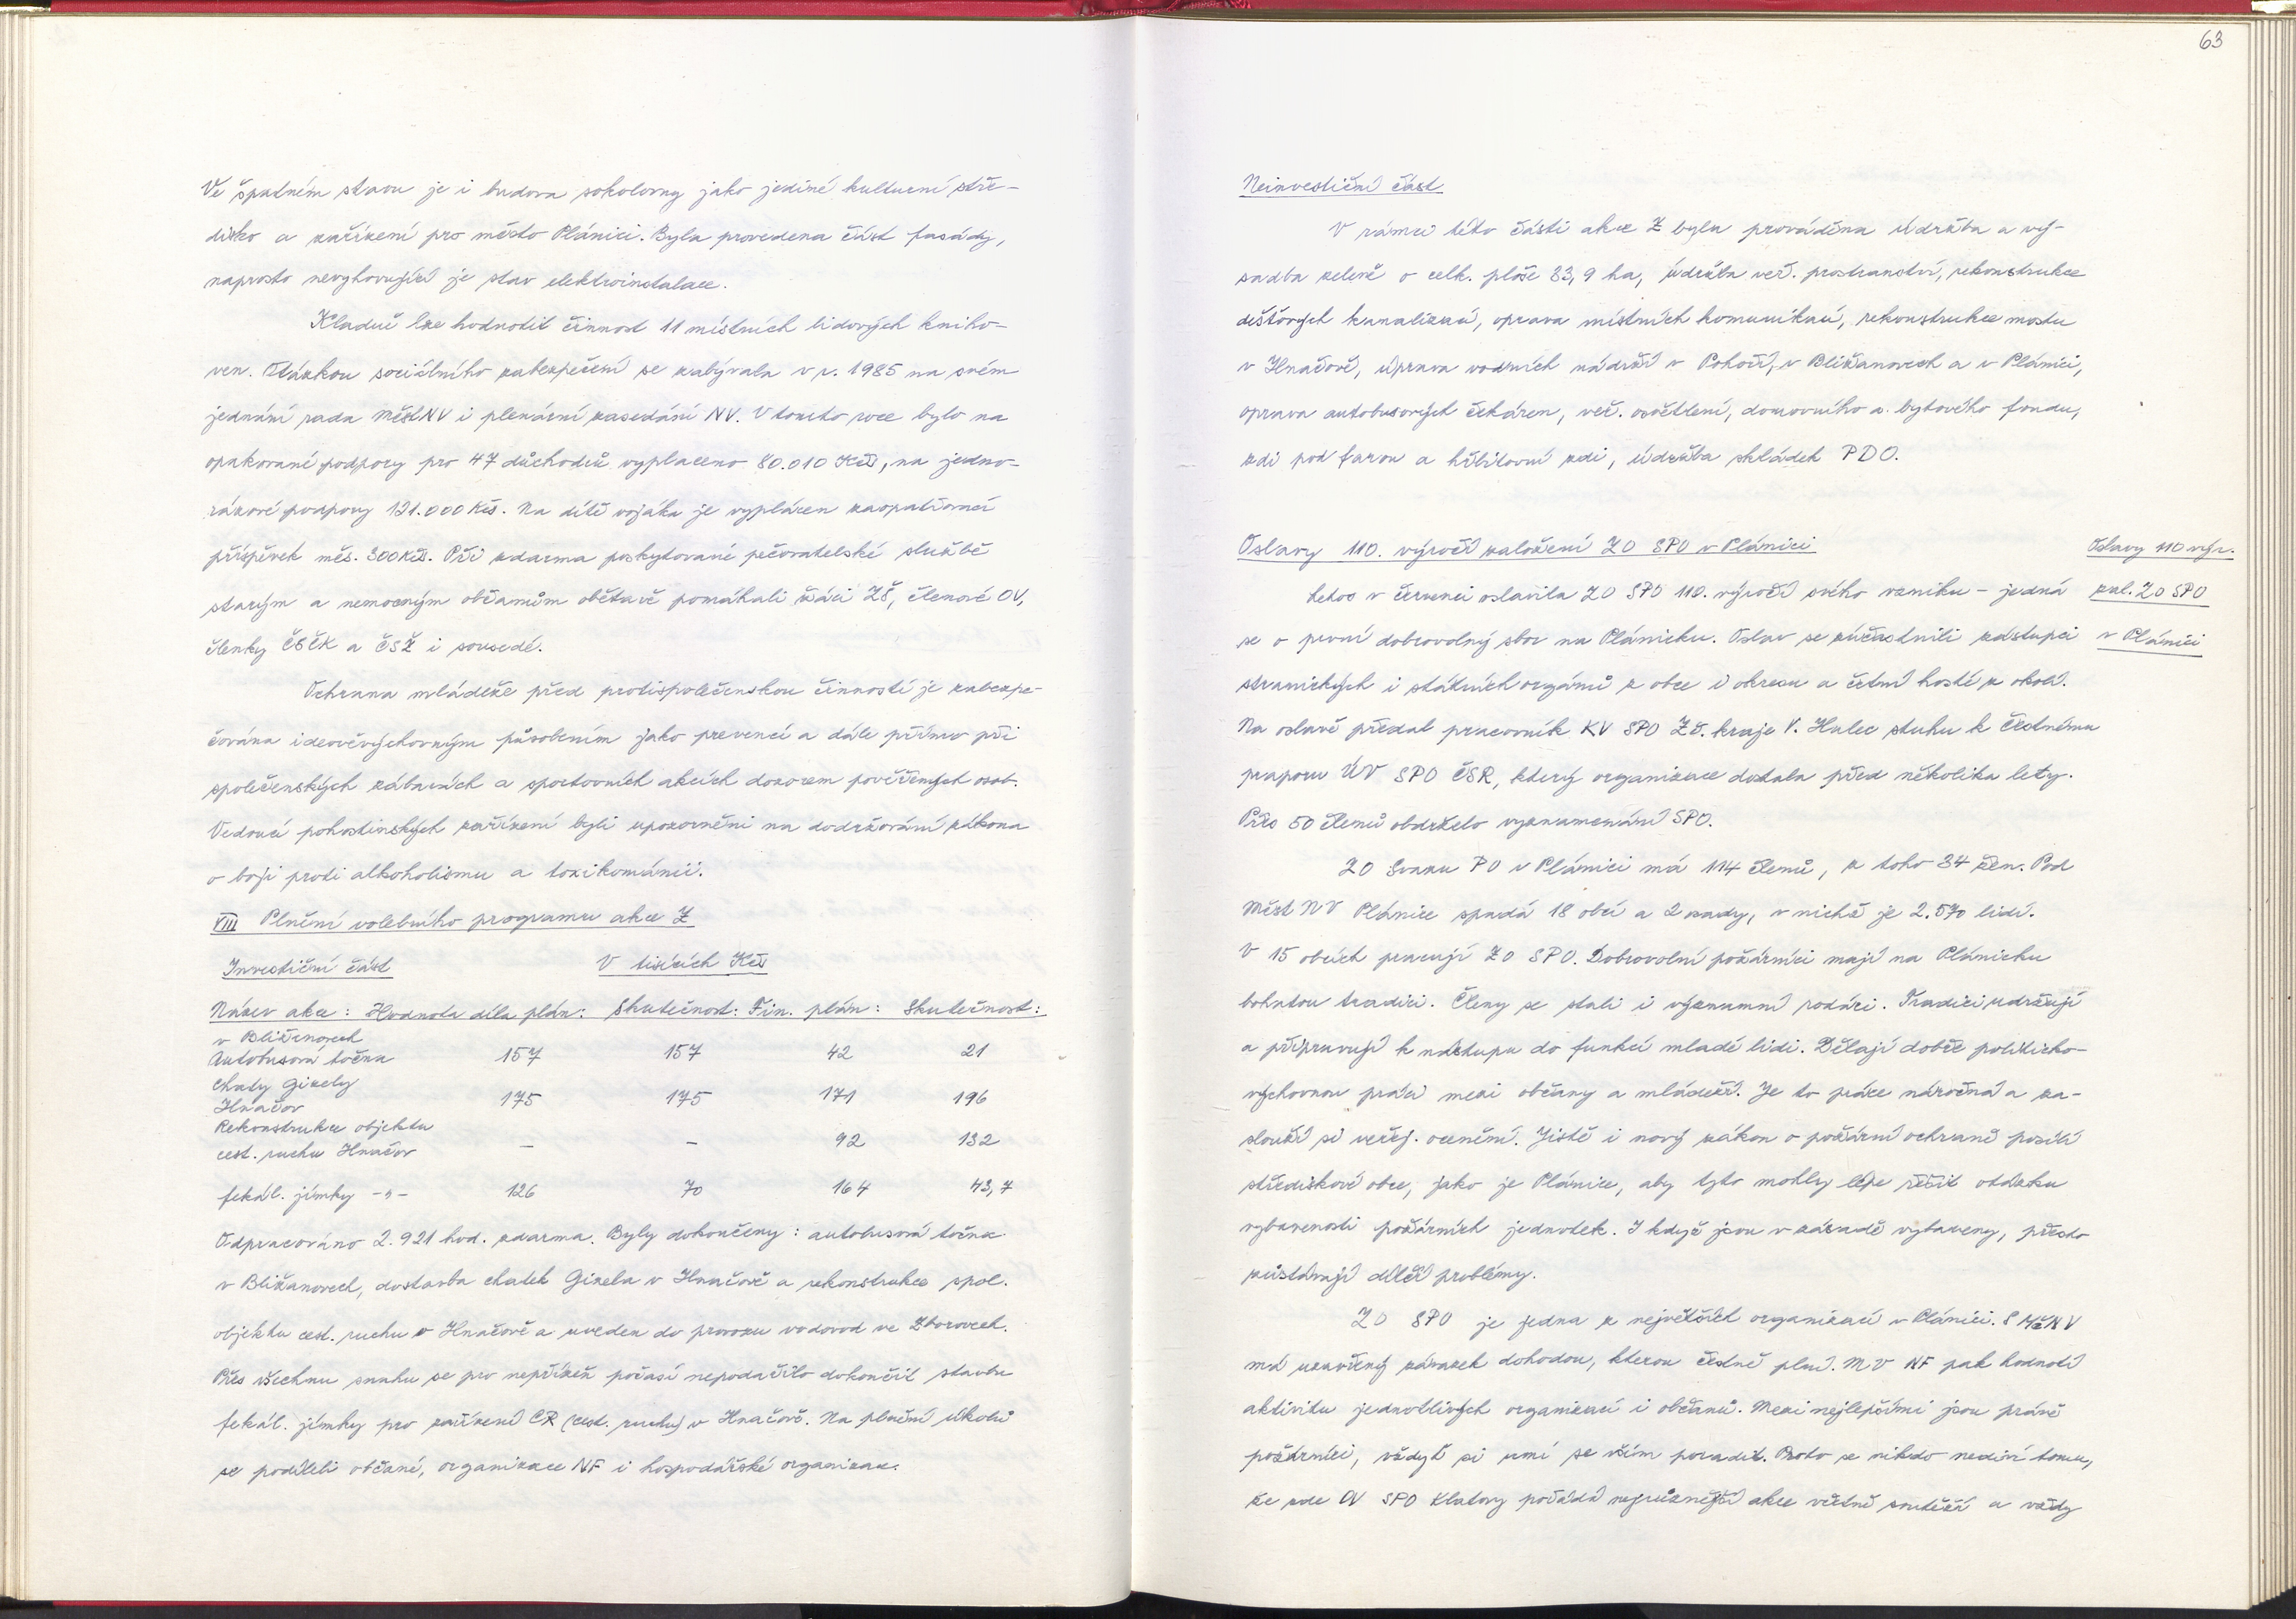 Ve špatném stavu je i budova sokolovny jako jediné kulturní stře-
disko a zařízení pro město Plánici. Byla provedena část fasády,
naprosto nevyhovující je stav elektroinstalace.
Kladně lze hodnotit činnost 11 místních lidových kniho-
ven. Otázkou sociálního zabezpečení se zabývala v r. 1985 na svém
jednání rada MěstNV i plenární zasedání NV. V tomto roce bylo na
opakované podpory pro 47 důchodců vyplaceno 80.010 Kčs, na jedno-
rázové podpory 121.000 Kčs. Na dítě vojáka je vyplácen zaopatřovací
příspěvek měs. 300 Kčs. Při zdarma poskytované pečovatelské službě
starým a nemocným občanům obětavě pomáhali žáci ZŠ, členové OV,
členky ČSČK a ČSŽ i sousedé.
Ochrana mládeže před protispolečenskou činností je zabezpe-
čována ideověvýchovným působením jako prevencí a dále přímo při
společenských zábavách a sportovních akcích dozorem pověřených osob.
Vedoucí pohostinských zařízení byli upozorněni na dodržování zákona
o boji proti alkoholismu a toxikománii.
VIII Plnění volebního programu akce Z
Investiční část V tisících Kčs
Název akce: Hodnota díla plán: Skutečnost: Fin. plán: Skutečnost:
v Bližanovech
Autobusová točna 157 157 42 21
Chaty Gizely
Hnačov 175 175 171 196
Rekonstrukce objektu
cest. ruchu Hnačov – – 92 132
fekál. jímky -"- 126 70 164 43,7
Odpracováno 2.921 hod. zdarma. Byly dokončeny: autobusová točna
v Bližanovech, dostavba chatek Gizela v Hnačově a rekonstrukce spol.
objektu cest. ruchu v Hnačově a uveden do provozu vodovod ve Zborovech.
Přes všechnu snahu se pro nepřízeň počasí nepodařilo dokončit stavbu
fekál. jímky pro zařízení CR (cest. ruchu) v Hnačově. Na plnění úkolů
se podíleli občané, organizace NF i hospodářské organizace.
63
Neinvestiční část
V rámci této části akce Z byla prováděna údržba a vý-
sadba zeleně o celk. ploše 83,9 ha, údržba veř. prostranství, rekonstrukce
dešťových kanalizací, oprava místních komunikací, rekonstrukce mostu
v Hnačově, úprava vodních nádrží v Pohoří, v Bližanovech a v Plánici,
oprava autobusových čekáren, veř. osvětlení, domovního a bytového fondu,
zdi pod farou a hřbitovní zdi, údržba skládek PDO.
Oslavy 110. výročí založení ZO SPO v Plánici
Oslavy 110 výr.
zal. ZO SPO
v Plánici
Letos v červenci oslavila ZO SPO 110. výročí svého vzniku – jedná
se o první dobrovolný sbor na Plánicku. Oslav se zúčastnili zástupci
stranických i státních orgánů z obce i okresu a četní hosté z okolí.
Na oslavě předal pracovník KV SPO Zč. kraje V. Hulec stuhu k čestnému
praporu ÚV SPO ČSR, který organizace dostala před několika lety.
Přes 50 členů obdrželo vyznamenání SPO.
ZO Svazu PO v Plánici má 114 členů, z toho 34 žen. Pod
Měst NV Plánice spadá 18 obcí a 2 osady, v nichž je 2.570 lidí.
V 15 obcích pracují ZO SPO. Dobrovolní požárníci mají na Plánicku
bohatou tradici. Členy se stali i významní rodáci. Tradici udržují
a připravují k nástupu do funkcí mladé lidi. Dělají dobře politicko-
výchovnou práci mezi občany a mládeží. Je to práce náročná a za-
slouží si veřej. ocenění. Jistě i nový zákon o požární ochraně posílí
střediskové obce, jako je Plánice, aby tyto mohly lépe řešit otázku
vybavenosti požárních jednotek. I když jsou v zásadě vybaveny, přesto
zůstávají dílčí problémy.
ZO SPO je jedna z největších organizací v Plánici. S MěNV
má uzavřený závazek dohodou, kterou čestně plní. MV NF pak hodnotí
aktivitu jednotlivých organizací i občanů. Mezi nejlepšími jsou právě
požárníci, vždyť si umí se vším poradit. Proto se nikdo nediví tomu,
že zde OV SPO Klatovy pořádá nejrůznější akce včetně soutěží a vždy